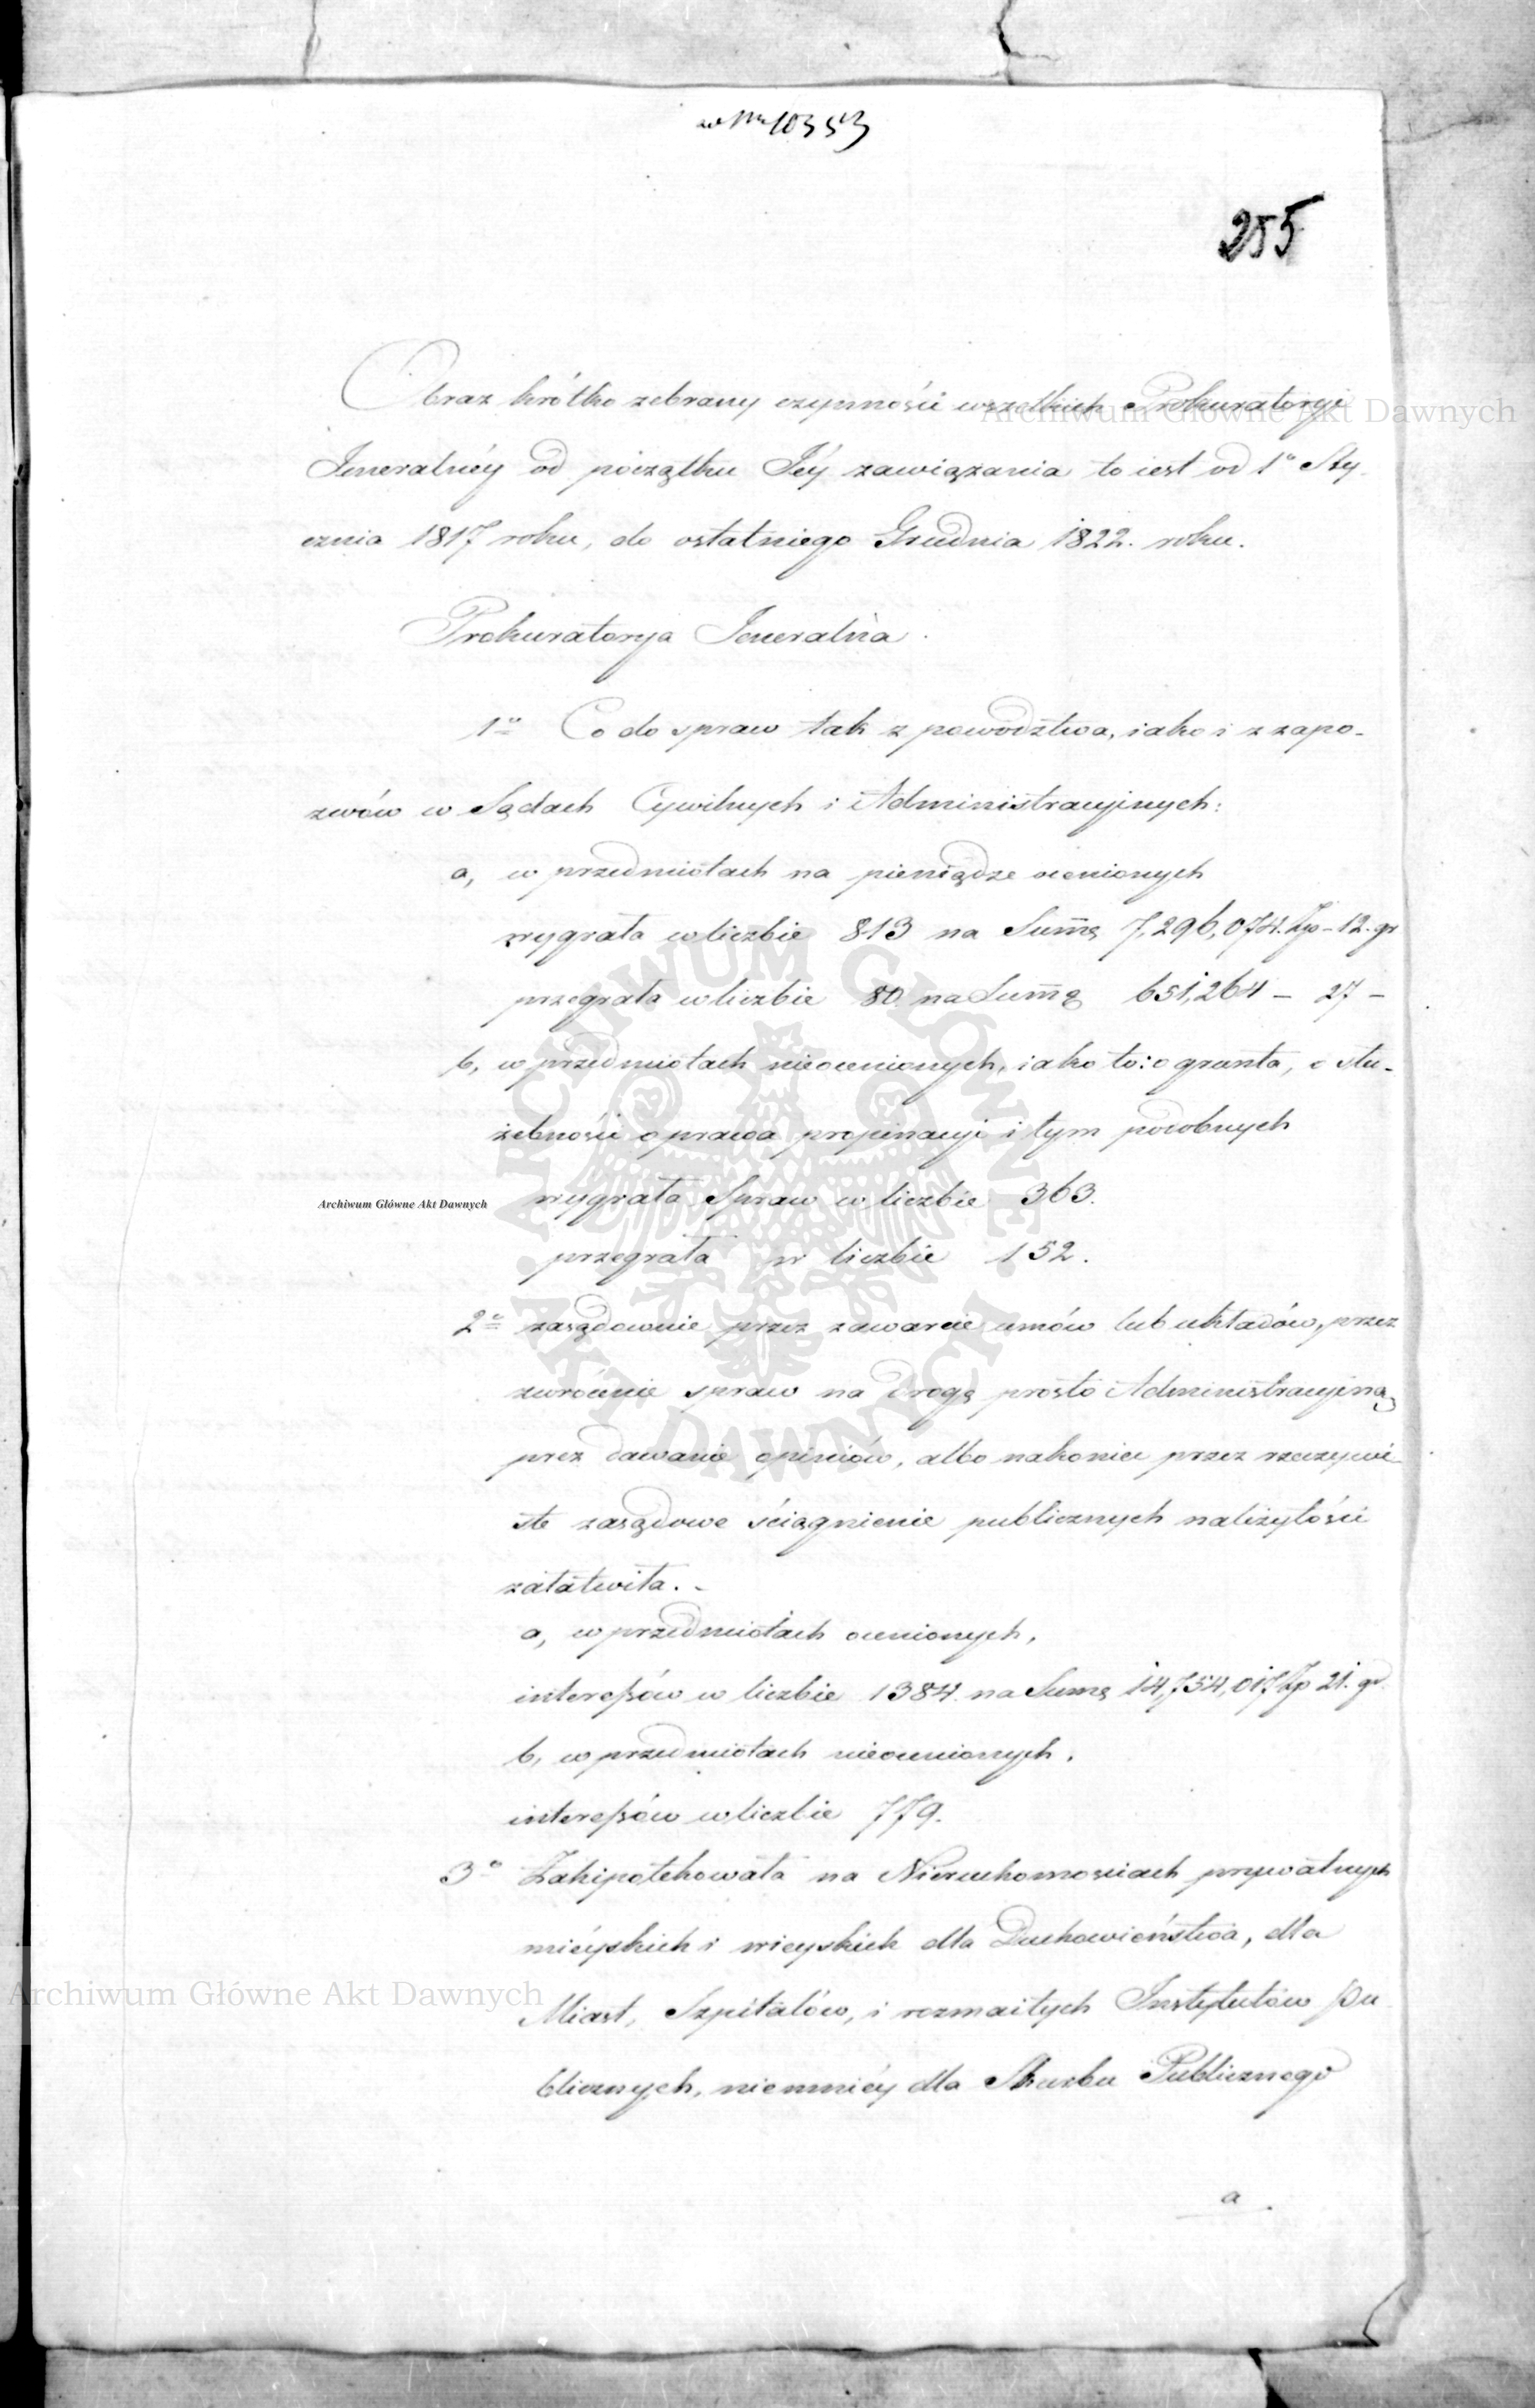 w Nr 10353
255
Obraz krótko zebrany czynności wszelkich Prokuratoryi
Jeneralnéy od początku Jéy zawiązania to iest od 1o Sty-
cznia 1817 roku, do ostatniego Grudnia 1822. roku.
Prokuratorya Jeneralna.
1o Co do spraw tak z powodztwa, iako i z zapo-
zwów w Sądach Cywilnych i Administracyjnych:
a, w przedmiotach na pieniądze ocenionych
wygrała w liczbie 813 na Summę 7,296,074. Zp - 12. gr
przegrała w liczbie 80. na Summę 651,264 - 27 -
b, w przedmiotach nieocenionych, iako to: o grunta, o słu-
żebności o prawa propinacyi i tym podobnych
wygrała Spraw w liczbie 363.
Archiwum Główne Akt Dawnych
przegrała w liczbie 152.
2o zasądownie przez zawarcie umów lub układów, przez
zwrócenie spraw na drogę prosto Administracyjną
przez dawanie opiniów, albo nakoniec przez rzeczywi-
ste zasądowe ściągnienie publicznych należytości
załatwiła. -
a, w przedmiotach ocenionych,
interessów w liczbie 1384. na Summę 14,754,017 Zp 21. gr.
b, w przedmiotach nieocenionych.
interessów w liczbie 779.
3o Zahipotekowała na Nieruchomosciach prywatnych
mieyskich i wieyskich dla Duchowieństwa, dla
Miast, Szpitalów, i rozmaitych Instytutów Pu-
blicznych, niemniéy dla Skarbu Publicznego
a.
Archiwum Główne Akt Dawnych
Archiwum Główne Akt Dawnych
ARCHIWUM GŁÓWNE AKT DAWNYCH